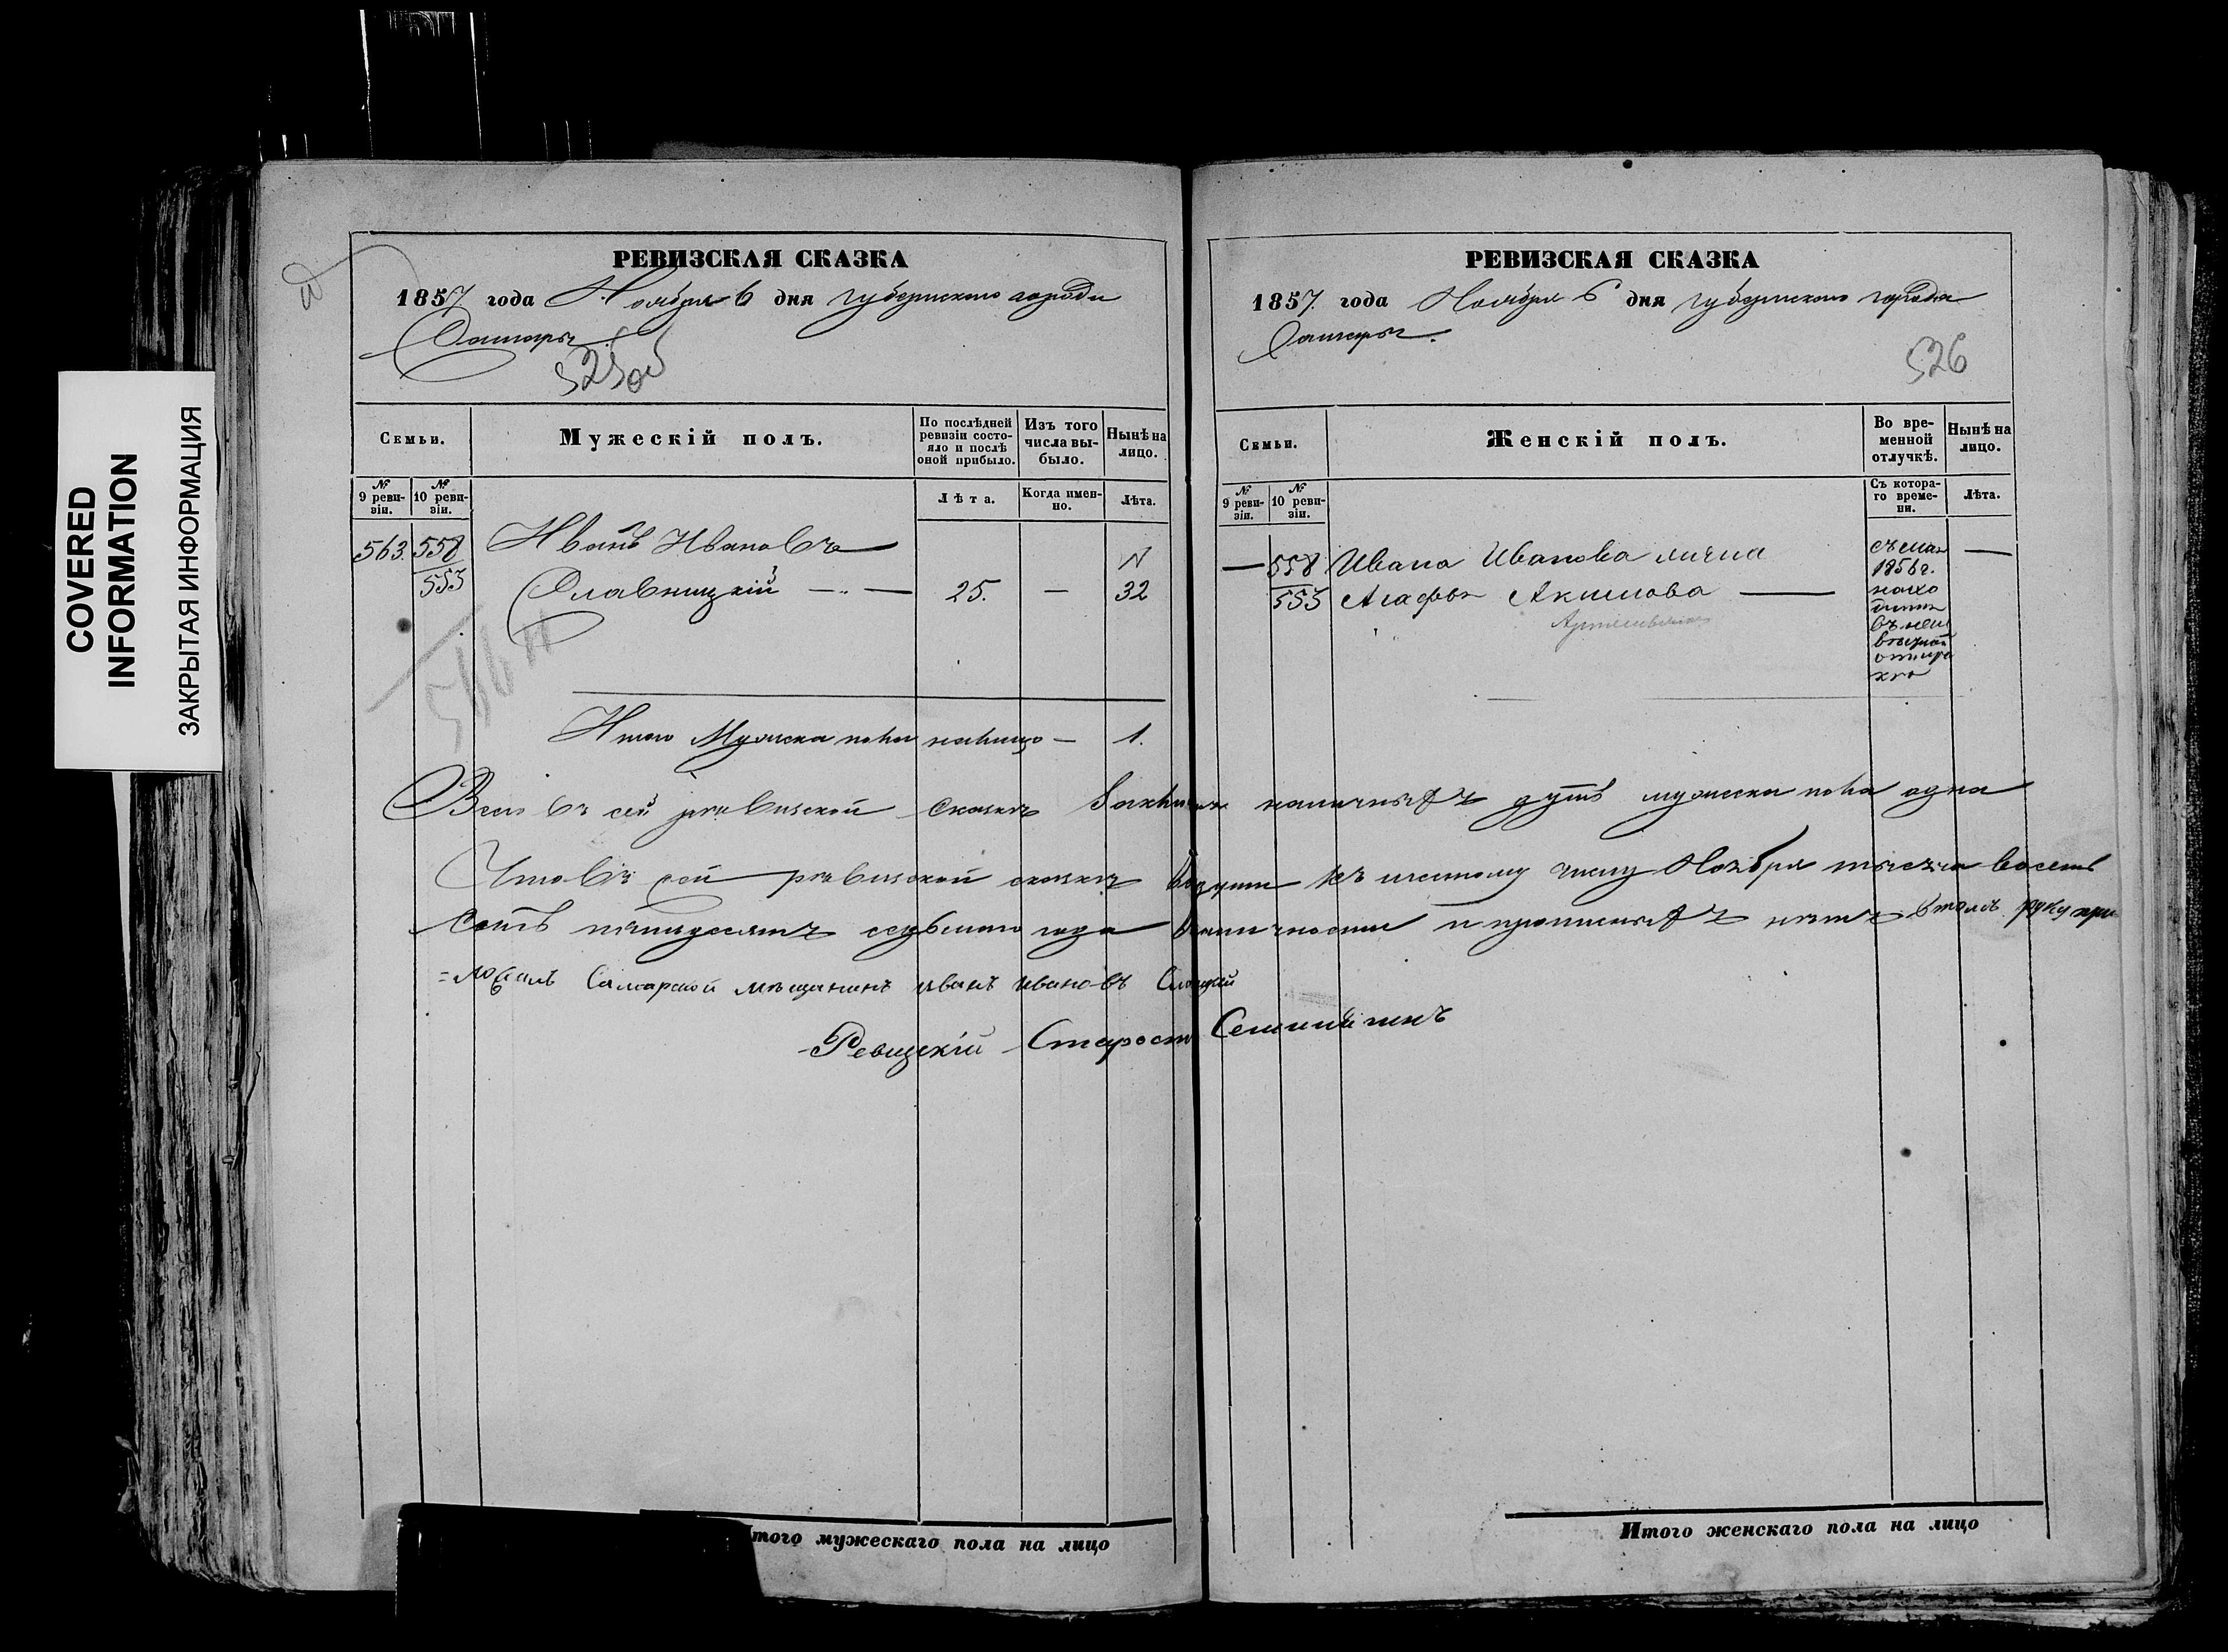 COVERED
INFORMATION
ЗАКРЫТАЯ ИНФОРМАЦИЯ
РЕВИЗСКАЯ СКАЗКА
1857 года Ноября 6 дня губернскаго города
Самары
525об
Семьи.
Мужескій полъ.
По послѣдней ревизіи состояло и послѣ оной прибыло.
Изъ того числа выбыло.
Нынѣ на лицо.
№ 9 ревизіи.
№ 10 ревизіи.
Лѣта.
Когда именно.
Лѣта.
563. 558 Иванъ Ивановъ
553 Славницкій — 25. — 32
Итого Мужеска пола налицо — 1.
РЕВИЗСКАЯ СКАЗКА
1857. года Ноября 6 дня губернскаго города
Самары.
526
Семьи.
Женскій полъ.
Во временной отлучкѣ.
Нынѣ на лицо.
№ 9 ревизіи.
№ 10 ревизіи.
Съ котораго времени.
Лѣта.
— 558 Ивана Иванова жена
553 Агафья Акимова —
1856 г.
Всего въ сей ревизской сказкѣ наличныхъ душъ мужеска пола одна
Что въ сей ревизской сказкѣ къ шестому числу Ноября тысяча восемь
сотъ пятьдесятъ седьмаго года и прописныхъ нѣтъ втомъ руку при
=ложилъ Самарской мѣщанинъ иванъ ивановъ
Ревизкій Староста
Итого мужескаго пола на лицо
Итого женскаго пола на лицо